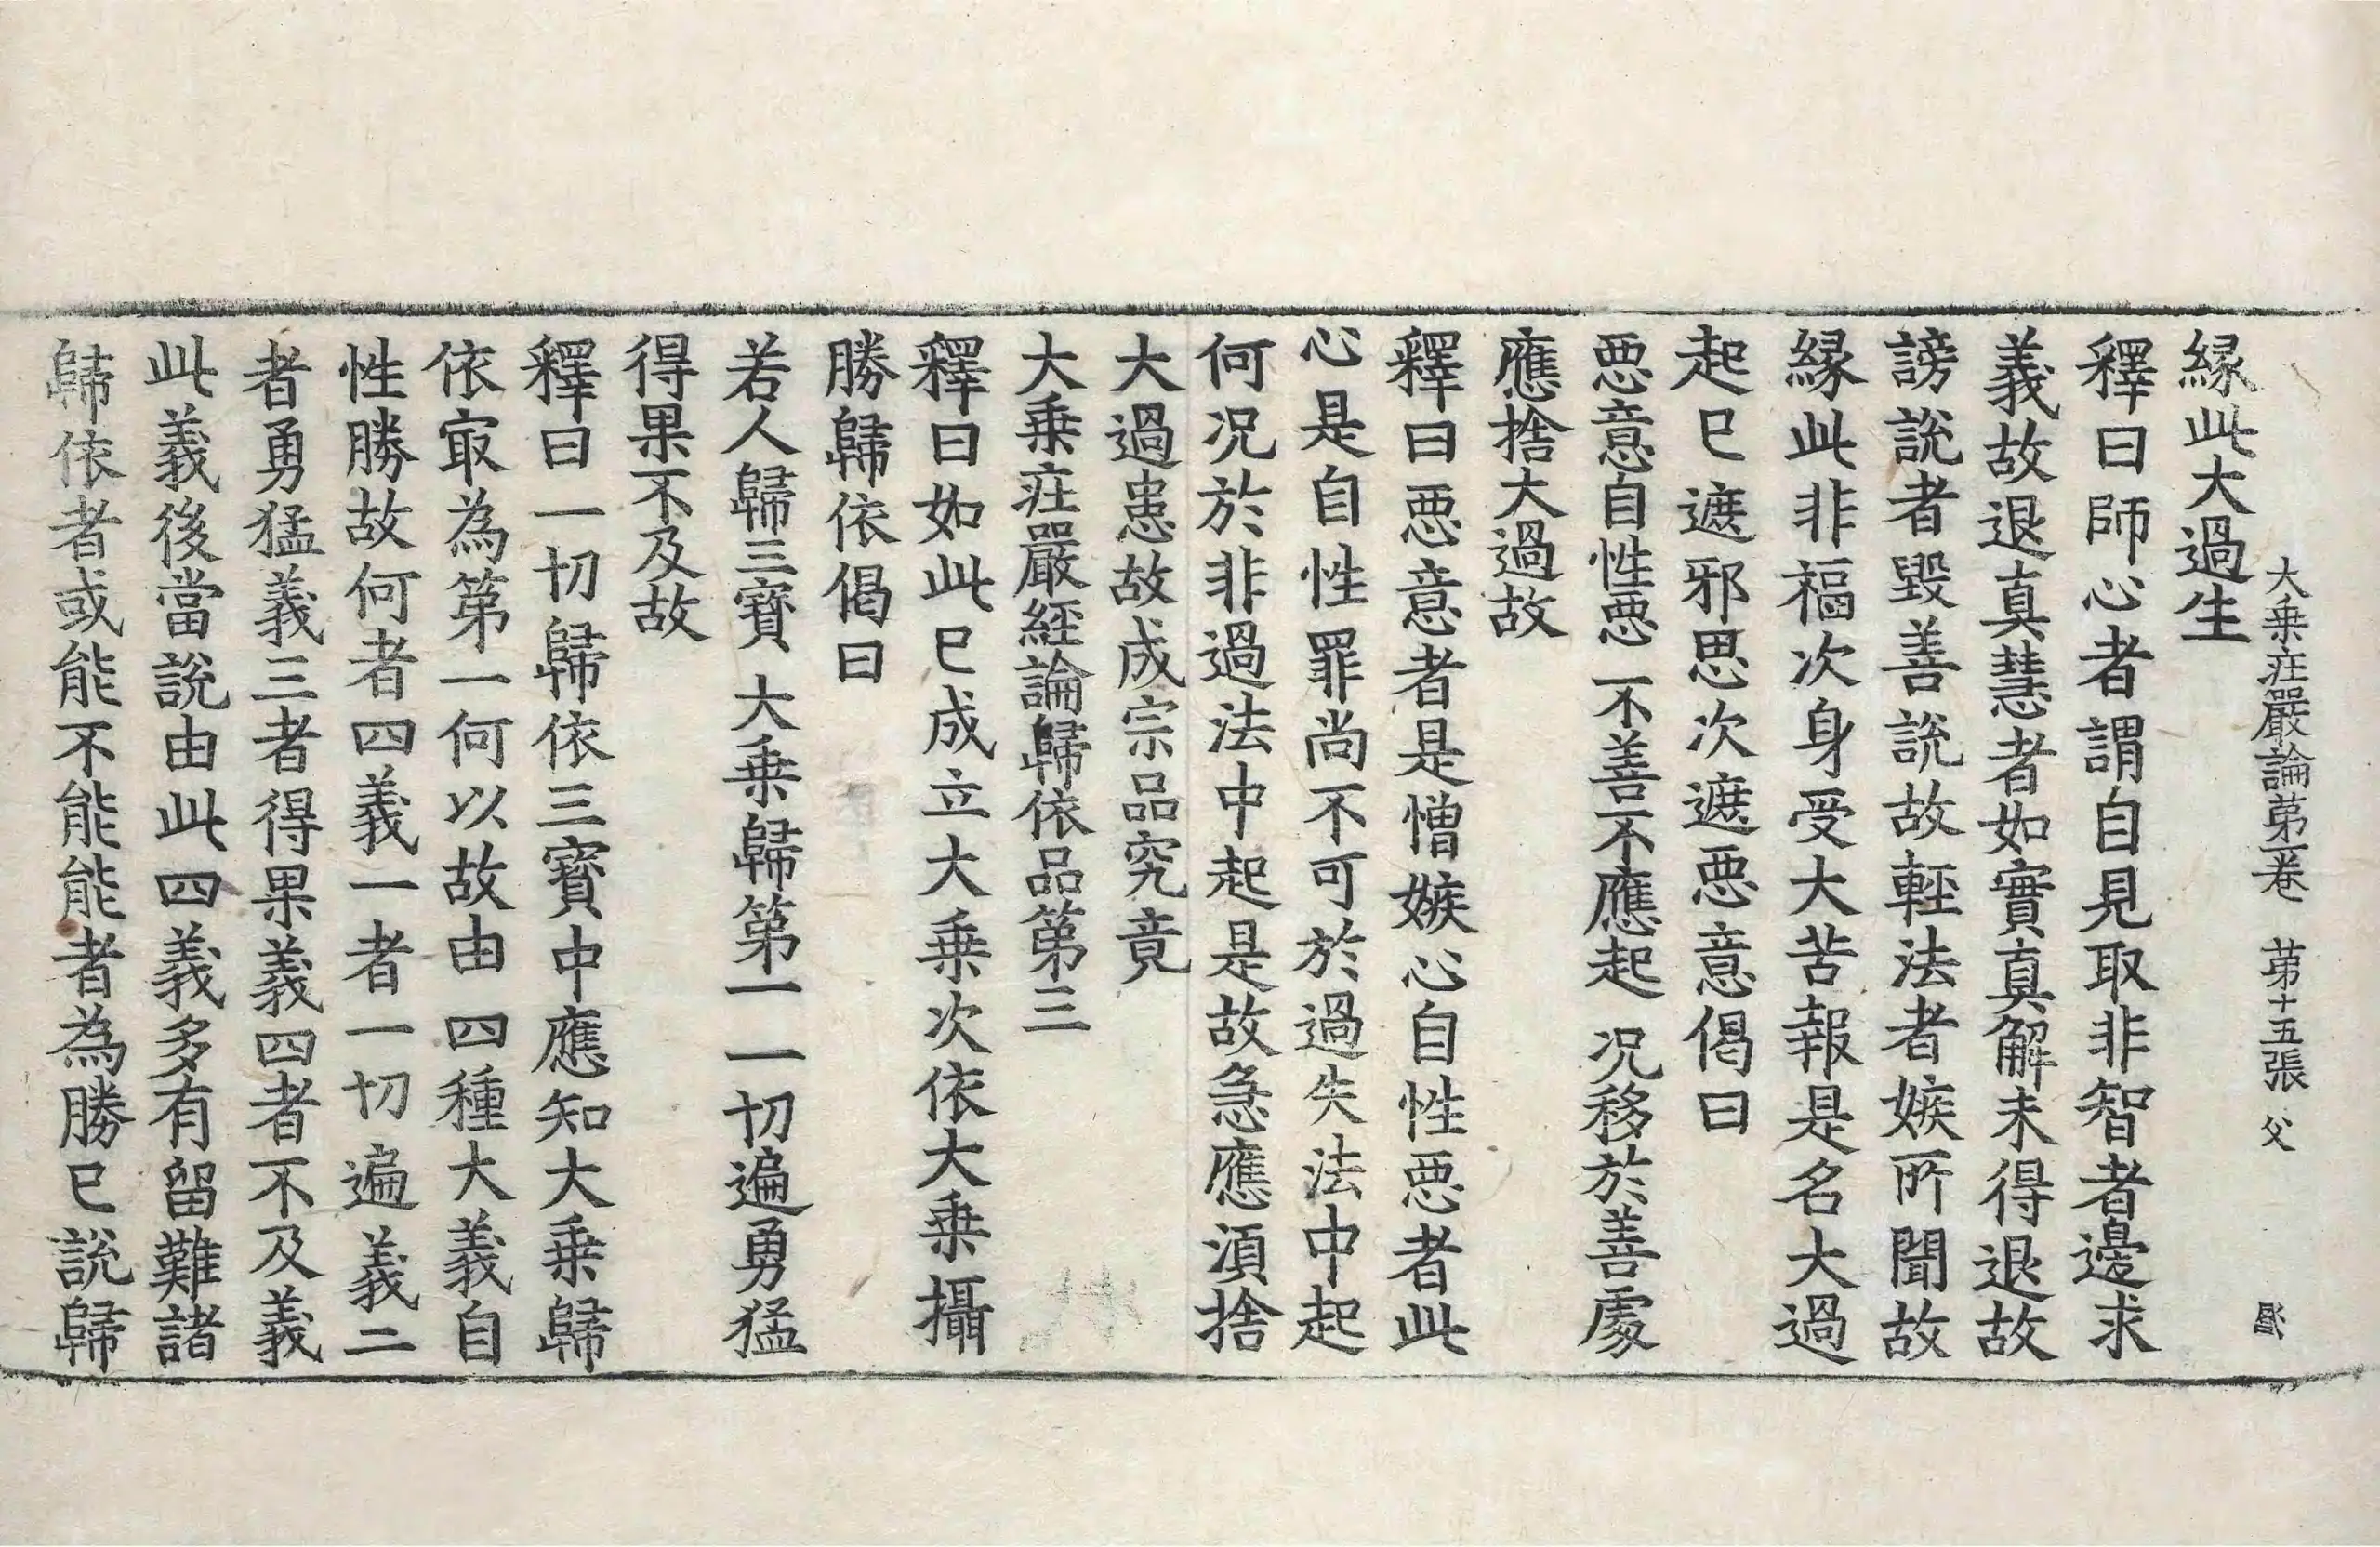 大乗荘嚴論第一卷 第十五張 父
縁此大過生
釋曰師心者謂自見取非智者邊求
義故退真慧者如實真解未得退故
謗說者毀善說故輕法者嫉所聞故
縁此非福次身受大苦報是名大過
起已遮邪思次遮悪意偈曰
悪意自性悪 不善不應起 況移於善處
應捨大過故
釋曰悪意者是憎嫉心自性悪者此
心是自性罪尚不可於過失法中起
何况於非過法中起是故急應湏捨
大過患故成宗品究竟
大乗荘嚴經論歸依品第三
釋曰如此已成立大乗次依大乗攝
勝歸依偈曰
若人歸三寳 大乗歸第一 一切遍勇猛
得果不及故
釋曰一切歸依三寳中應知大乗歸
依㝡為第一何以故由四種大義自
性勝故何者四義一者一切遍義二
者勇猛義三者得果義四者不及義
此義後當說由此四義多有留難諸
歸依者或能不能能者為勝已說歸